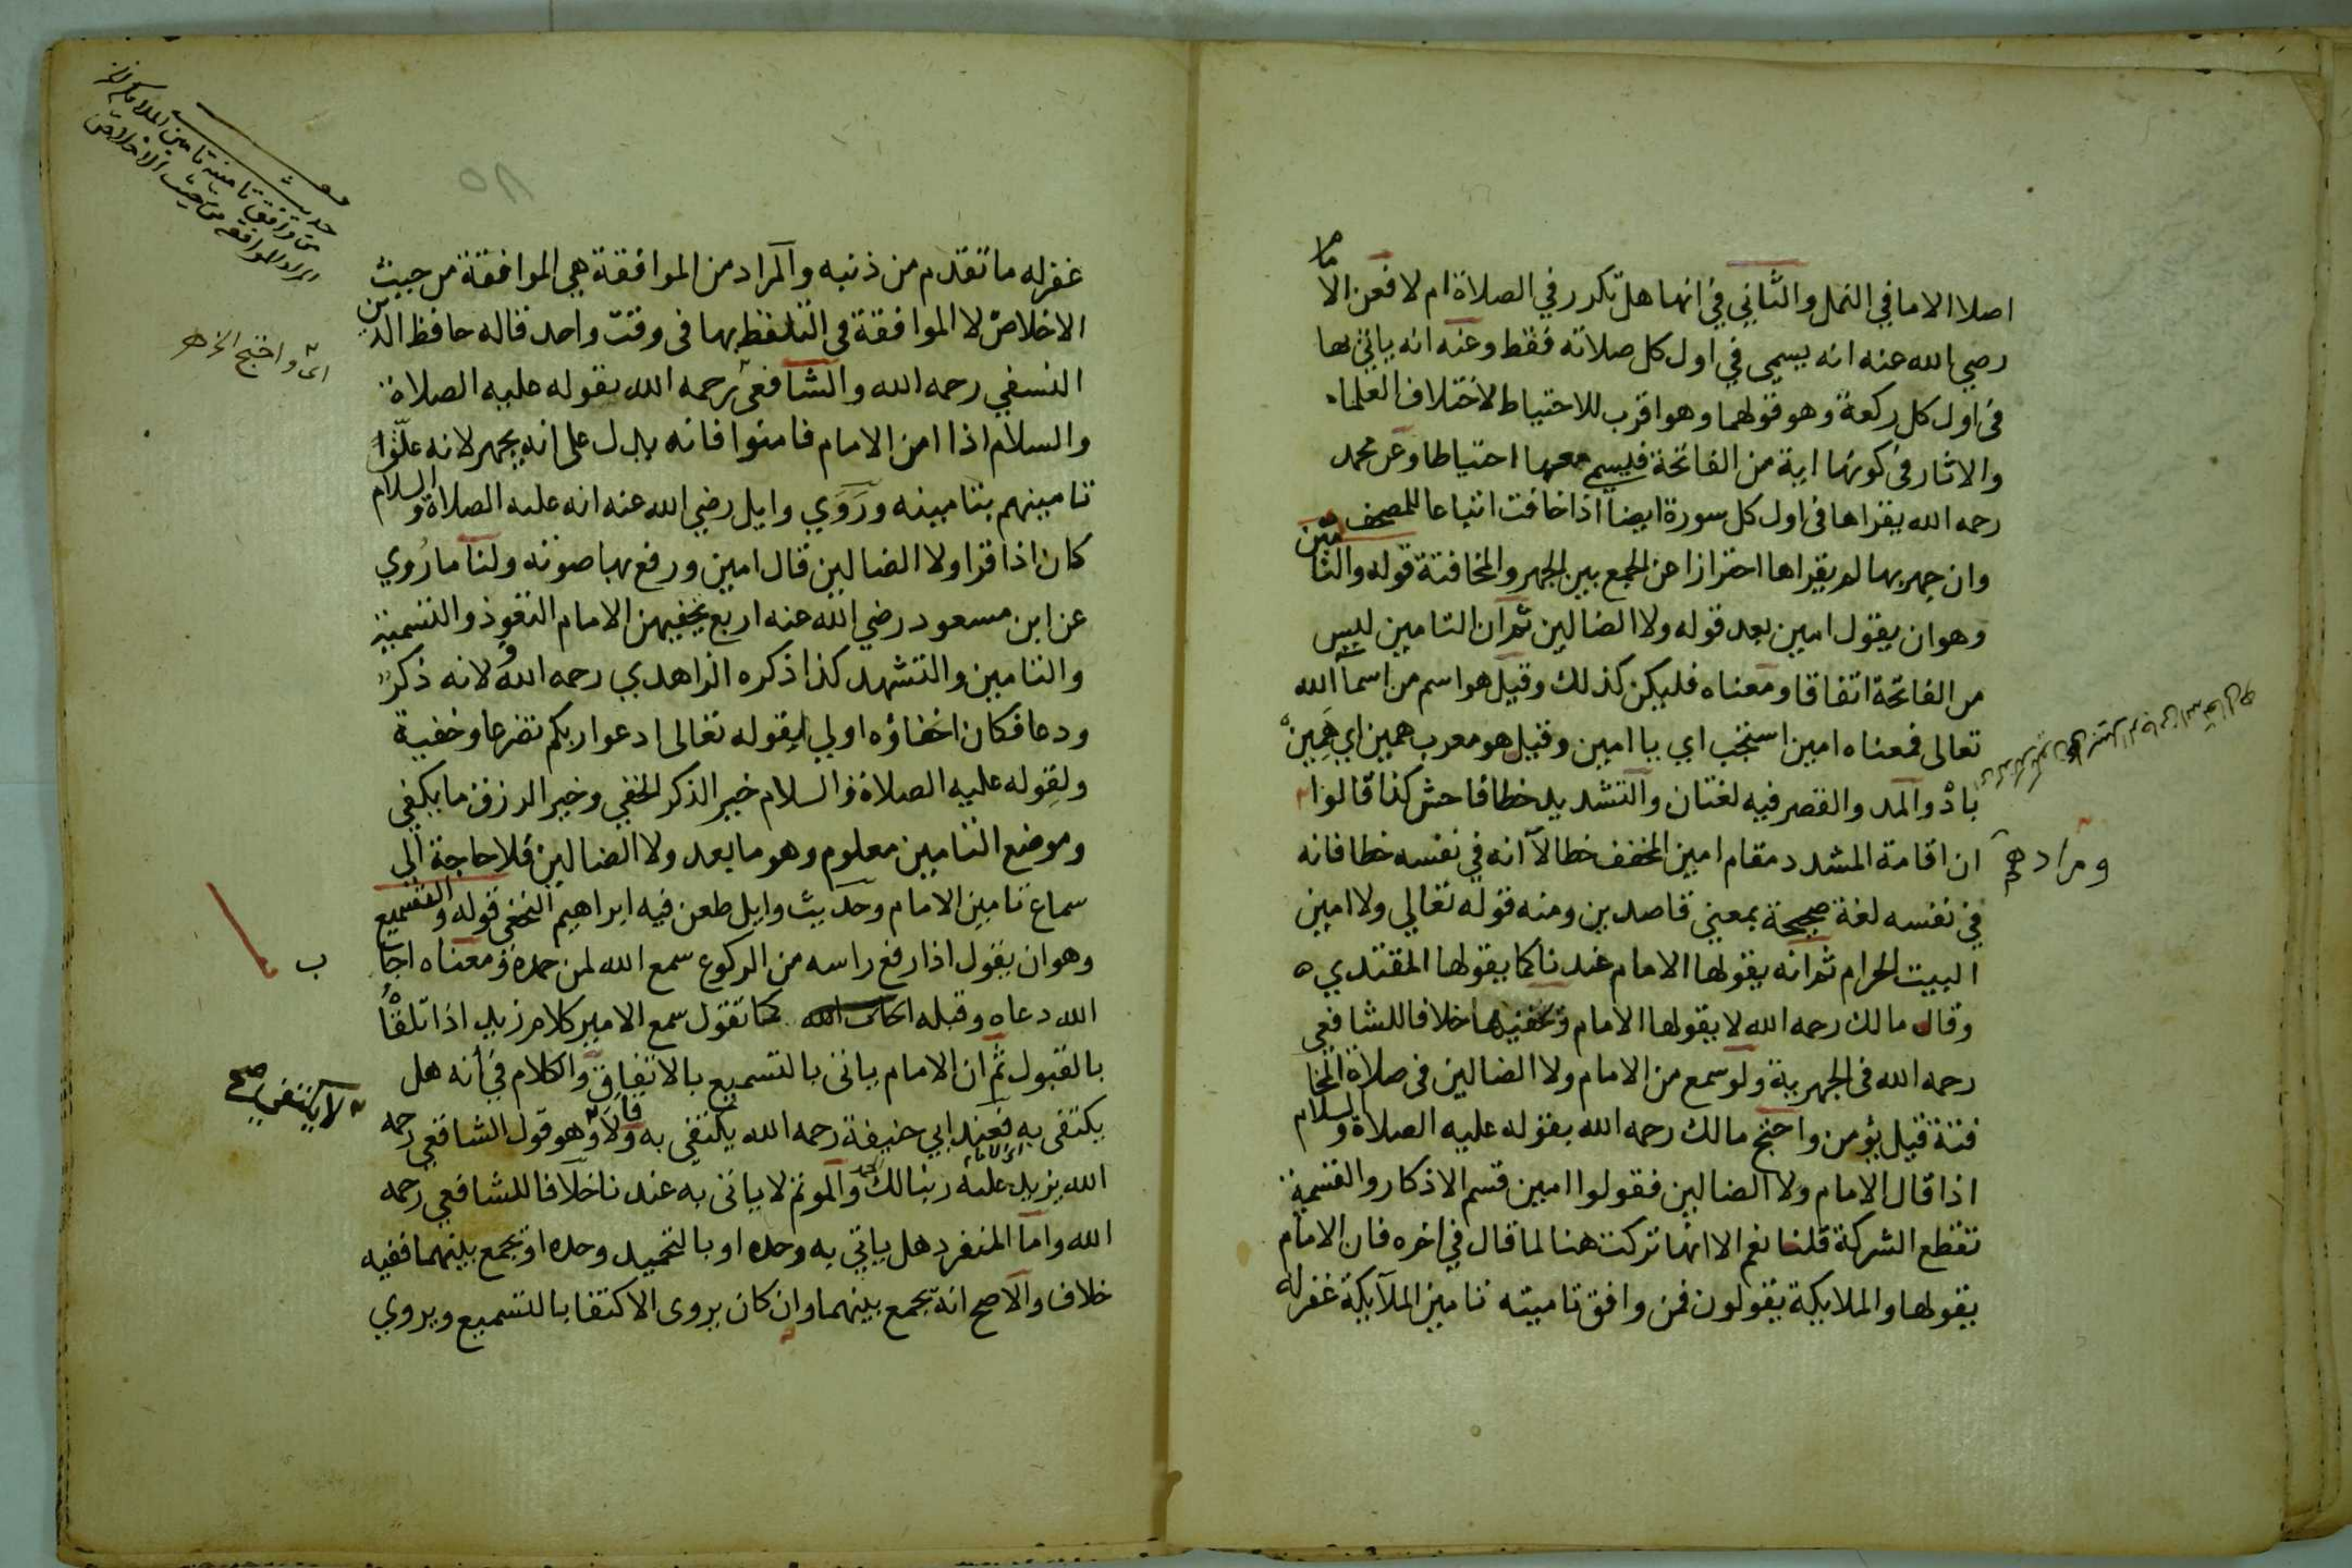 اصلا الا ما في النمل والثاني في انها هل تكرر في الصلاة ام لا فعن الاما
م
رضي الله عنه انه يسمى في اول كل صلاته فقط وعنه انه ياتي بها
في اول كل ركعة وهو قولهما وهو اقرب للاحتياط لاختلاف العلماء
والاثار في كونها اية من الفاتحة فيسم معها احتياطا وعن محمد
رحمه الله يقراها في اول كل سورة ايضا اذا خافت اتباعا للمصحف
وان جهر بها لم يقراها احترازا عن الجمع بين الجهر والمخافتة قوله والتامين
وهو ان يقول امين بعد قوله ولا الضالين ثم ان التامين ليس
من الفاتحة اتفاقا ومعناه فليكن كذلك وقيل هو اسم من اسماء الله
تعالى فمعناه امين استجب اي يا امين وقيل هو معرب همين اي همين
باد والمد والقصر فيه لغتان والتشديد خطا فاحش كذا قالوا
ومرادهم
ان اقامة المشدد مقام امين المخفف خطا لا انه في نفسه خطا فانه
في نفسه لغة صحيحة بمعني قاصدين ومنه قوله تعالي ولا امين
البيت الحرام ثم انه يقولها الامام عندنا كما يقولها المقتدي ه
وقال مالك رحمه الله لا يقولها الامام ويخفيها خلافا للشافعي
رحمه الله في الجهرية ولو سمع من الامام ولا الضالين في صلاة المخا
فتة قيل يؤمن واحتج مالك رحمه الله بقوله عليه الصلاة والسلام
اذا قال الامام ولا الضالين فقولوا امين قسم الاذكار والقسمة
تقطع الشركة قلنا نعم الا انها تركت هنا لما قال في اخره فان الامام
يقولها والملايكة يقولون فمن وافق تامينه تامين الملايكة غفر له
غفر له ما تقدم من ذنبه والمراد من الموافقة هي الموافقة من حيث
الاخلاص لا الموافقة في التلفظ بها في وقت واحد قاله حافظ الدين
النسفي رحمه الله والشافعي رحمه الله بقوله عليه الصلاة
والسلام اذا امن الامام فامنوا فانه يدل على انه يجهر لانه علق
تامينهم بتامينه وروي وايل رضي الله عنه انه عليه الصلاة والسلام
كان اذا قرا ولا الضالين قال امين ورفع بها صوته ولنا ما روي
عن ابن مسعود رضي الله عنه اربع يخفيهن الامام التعوذ والتسمية
والتامين والتشهد كذا ذكره الزاهدي رحمه الله ولانه ذكر
ودعا فكان اخفاؤه اولي لقوله تعالى ادعوا ربكم تضرعا وخفية
ولقوله عليه الصلاة والسلام خير الذكر الخفي وخير الرزق ما يكفي
وموضع التامين معلوم وهو ما بعد ولا الضالين فلا حاجة الى
سماع تامين الامام وحديث وايل طعن فيه ابراهيم النخعي قوله والتسميع
وهو ان يقول اذا رفع راسه من الركوع سمع الله لمن حمده ومعناه اجا
ب
الله دعاه وقبله كما تقول سمع الامير كلام زيد اذا تلقا
بالقبول ثم ان الامام ياتي بالتسميع بالاتفاق والكلام في انه هل
يكتفى به فعند ابي حنيفة رحمه الله يكتفي به وقالا وهو قول الشافعي رحمه
لا يكتفي صح
الله يزيد عليه ربنا لك الحمد والموتم لا ياتي به عندنا خلافا للشافعي رحمه
الله واما المنفرد هل ياتي به وحده او بالتحميد وحده او يجمع بينهما ففيه
خلاف والاصح انه يجمع بينهما وان كان يروى الاكتفا بالتسميع ويروي
حديث
من وافق تامينه تامين الملايكة
المراد الموافقة من حيث الاخلاص
اي واحتج الخ
٨٥